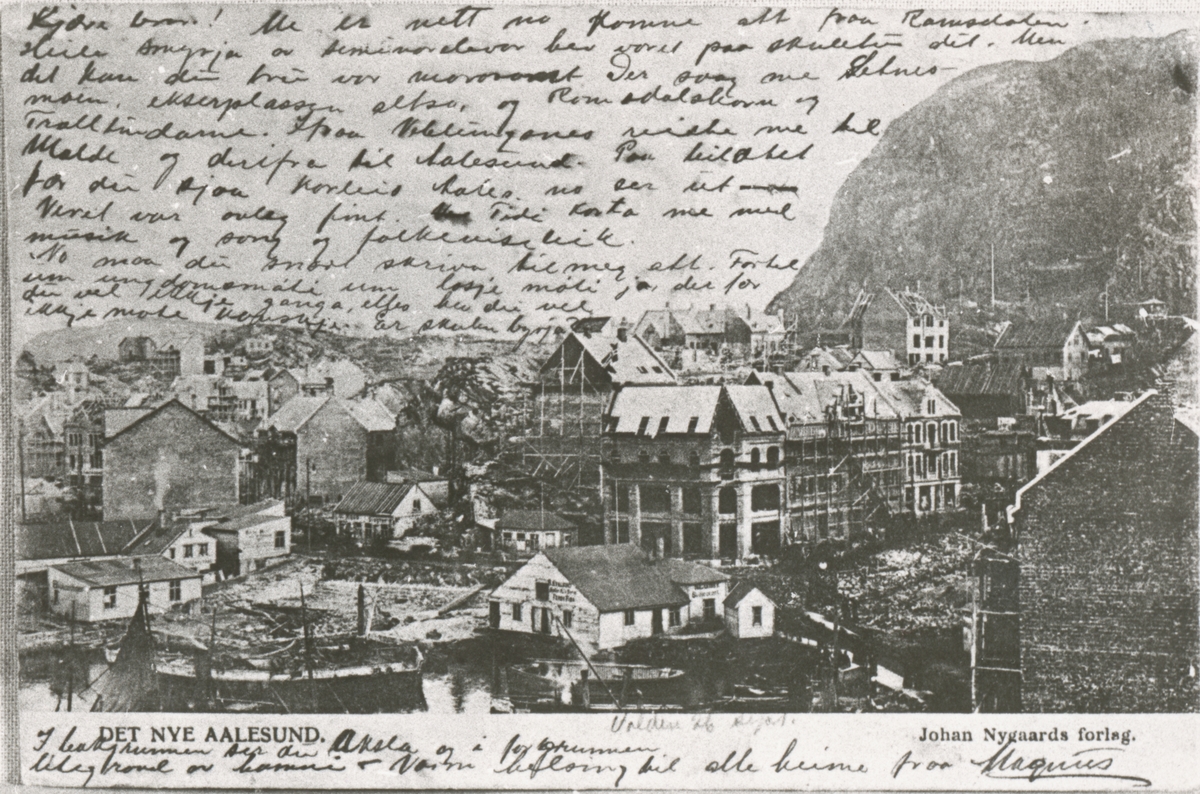 Kjære bror! Me er nett no komne att fraa Ramsdalen.
Heile smyrja av seminarelevar hev voret paa skuletur dit. Men
det kan du tru var morosamt Der saag me Setnes-
moen, ekserplassen altso, og Romsdalshorn og
Trolltindarne. Ifraa Veblungsnes reiste me til
Molde og derifra til Aalesund. Paa bilætet
fær du sjaa korleis Aales. no ser ut
Veret var ovleg fint. Tidi korta me med
musik og song og folkeviseleik.
No maa du snart skriva til meg att. Fortel
um ungdomsmøti um losje møti ja, du fær
du vel ikkje ganga, elles hev du vel
ikkje møte Er skulen byrja
DET NYE AALESUND.
Johan Nygaards forlag.
I bakgrunnen ser du Aksla og i forgrunnen
litegrand av hamni. Varm helsing til alle heime fraa Magnus